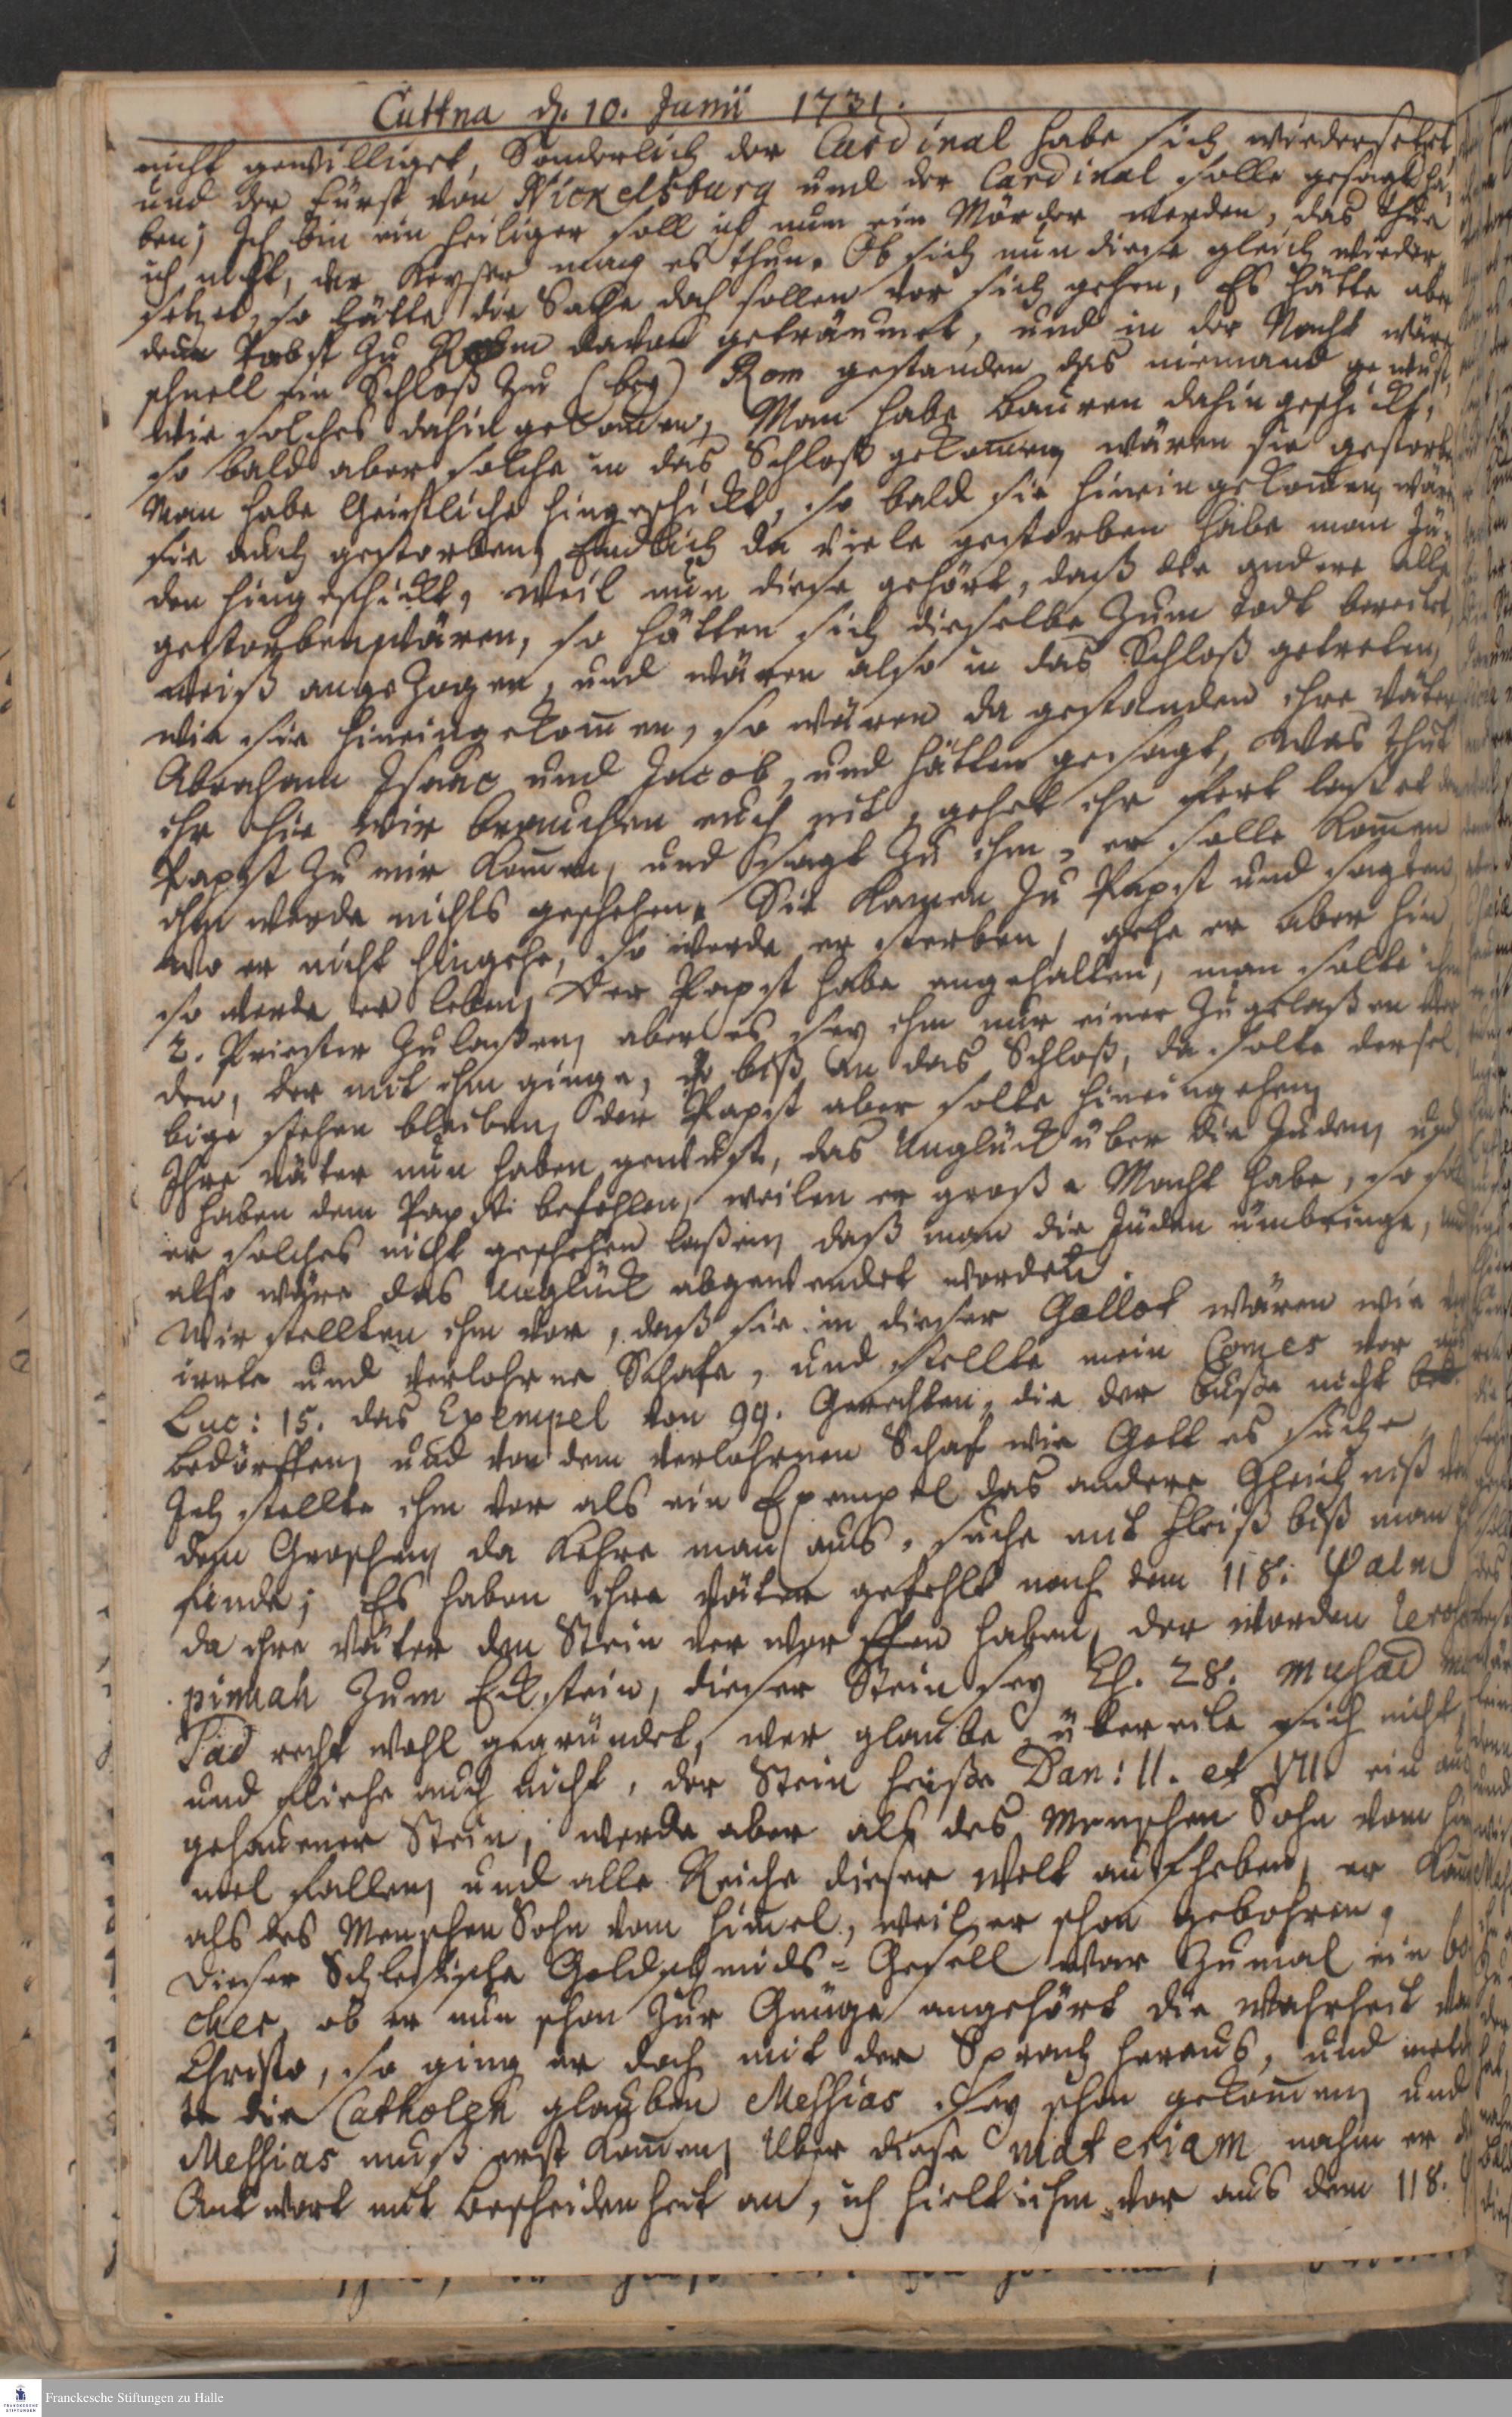 Cuttna d. 10. Junii 1731.
nicht gewilliget, Sonderlich der Cardinal habe sich wiedersetzt,
und der Fürst von Nickelsburg und der Cardinal solle gesagt ha-
ben; Ich bin ein heiliger soll ich nun ein Mörder werden, das thue
ich nicht, der Keyser mag es thun. Ob sich nun diese gleich wieder
setzet, so hätte die Sache doch sollen vor sich gehen, Es hätte aber
dem Pabst zu Rom davon geträumet, und in der Nacht wäre
schnell ein Schloß zu (bey) Rom gestanden das niemand gewust,
wie solches dahin gekomen, Man habe Bauren dahin geschickt,
so bald aber solche in das Schloß gekomen, wären sie gestorben
Man habe Geistliche hingeschickt, so bald sie hineingekomen, wären
sie auch gestorben, Endlich da viele gestorben habe man Jü-
den hingeschickt, weil nun diese gehört, daß die andere alle
gestorben wären, so hätten sich dieselbe zum todt bereitet,
weiß angezogen, und wären also in das Schloß getreten,
wie sie hineingekomen, so wären da gestanden ihre Väter
Abraham Isaac und Jacob, und hätten gesagt, was thut
ihr hie wir brauchen euch nit, gehet ihr fort laßet den
Papst zu mir komen, und sagt zu ihm, er solle komen
ihm werde nichts geschehen. Sie kamen zu Papst und sagten,
wo er nicht hingehe, so werde er sterben, gehe er aber hin
so werde er leben, Der Papst habe angehalten, man solle ihm
2. Priester zulaßen, aber es sey ihm nur einer zugelaßen wor
den, der mit ihm ginge, biß an das Schloß, da solte dersel
bige stehen bleiben, der Papst aber solte hineingehen,
Ihre väter nun haben gewust, das Unglück über die Juden, und
haben dem Papst befohlen, weilen er große Macht habe, so soll
er solches nicht geschehen laßen, daß man die Juden umbringe, und
also wäre das Unglück abgewendet worden.
Wir stellten ihm vor, daß sie in dieser Gallot wären wie ver
irrte und verlohrne Schafe, und stellte mein Comes vor aus
Luc: 15. das Exempel von 99. Gerechten, die der buße nicht
bedörffen, und von dem verlohrnen Schaf wie Gott es suche,
Ich stellte ihm vor als ein Exempel das andere Gleichniß von
dem Groschen, da kehre man aus, suche mit fleiß biß man
finde; Es haben ihre Väter gefehlt nach dem 118. Psalm
da ihre Väter den Stein verworffen haben, der worden lerosch
pinnah zum Eckstein, dieser Stein sey Es. 28. musad mu
sad recht wohl gegründet, wer glaube, übereile sich nicht,
und fliehe auch nicht, der Stein heiße Dan: II. et VII. ein aus
gehauener Stein, werde aber als des Menschen Sohn vom him
mel fallen, und alle Reiche dieser Welt aufheben, er kome
als des Menschen Sohn vom himel, weil er schon gebohren.
Dieser Schlesische Goldschmids-Gesell war zumal ein bo
cher, ob er nun schon zur Gnüge angehört die Wahrheit von
Christo, so ging er doch mit der Sprach heraus, und meld
te die Catholen glauben Messias sey schon gekomen, und
Messias muß erst komen, Über diese materiam nahm er die
Antwort mit bescheidenheit an, ich hielt ihm vor aus dem 118.
Franckesche Stiftungen zu Halle